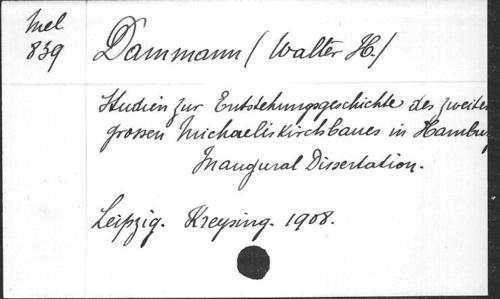 Mel
839
Dammann (Walter H.)
Studien zur Entstehungsgeschichte des zweiten
grossen Michaeliskirchbaues in Hamburg
Inaugural Dissertation.
Leipzig. Kreysing. 1908.